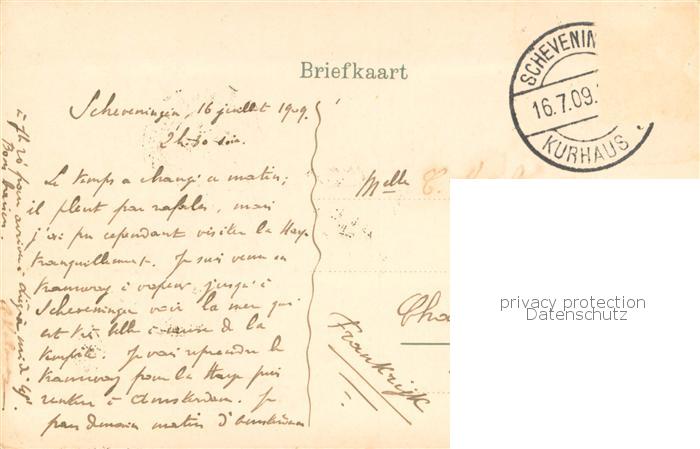 Briefkaart
SCHEVENIN
16.7.09.
KURHAUS
Scheveningen, 16 juillet 1909.
2h.30 soir.
Le temps a changé ce matin;
il pleut par rafales, mais
j'ai pu cependant visiter La Haye
tranquillement. Je suis venu en
tramway à vapeur jusqu'à
Scheveningen voir la mer qui
est très belle à cause de la
tempête. Je vais reprendre le
tramway pour La Haye puis
rentrer à Amsterdam. Je
pars demain matin d'Amsterdam
à 7h
pour arriver à
midi
Bons baisers.
Melle
Cha
Frankrijk
privacy protection
Datenschutz